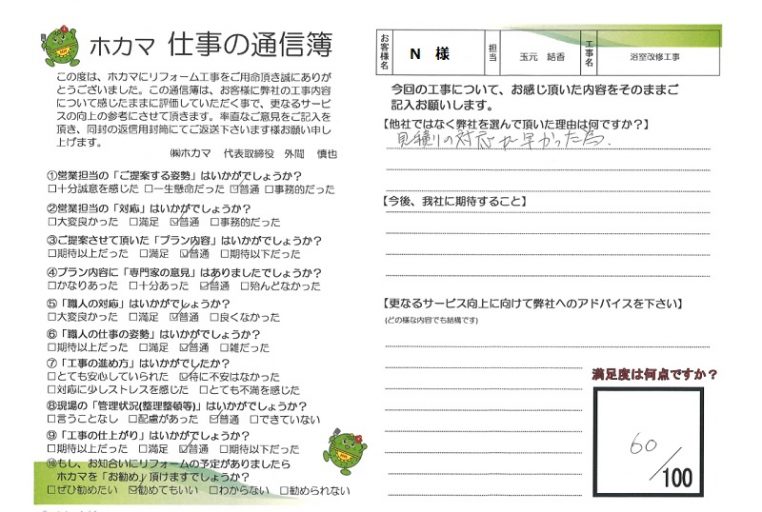 ホカマ 仕事の通信簿
この度は、ホカマにリフォーム工事をご用命頂き誠にありが
とうございました。この通信簿は、お客様に弊社の工事内容
について感じたままに評価していただく事で、更なるサービ
スの向上の参考にさせて頂きます。率直なご意見をご記入を
頂き、同封の返信用封筒にてご返送下さいます様お願い申し
上げます。
㈱ホカマ 代表取締役 外間 慎也
①営業担当の「ご提案する姿勢」はいかがでしょうか?
□十分誠意を感じた □一生懸命だった ☑普通 □事務的だった
②営業担当の「対応」はいかがでしょうか?
□大変良かった □満足 ☑普通 □事務的だった
③ご提案させて頂いた「プラン内容」はいかがでしょうか?
□期待以上だった □満足 ☑普通 □期待以下だった
④プラン内容に「専門家の意見」はありましたでしょうか?
□かなりあった □十分あった ☑普通 □殆んどなかった
⑤「職人の対応」はいかがでしょうか?
□大変良かった □満足 ☑普通 □良くなかった
⑥「職人の仕事の姿勢」はいかがでしょうか?
□期待以上だった □満足 ☑普通 □雑だった
⑦「工事の進め方」はいかがでしたか?
□とても安心していられた ☑特に不安はなかった
□対応に少しストレスを感じた □とても不満を感じた
⑧現場の「管理状況(整理整頓等)」はいかがでしょうか?
□言うことなし □配慮があった ☑普通 □できていない
⑨「工事の仕上がり」はいかがでしょうか?
□期待以上だった □満足 ☑普通 □期待以下だった
⑩もし、お知合いにリフォームの予定がありましたら
ホカマを「お勧め」頂けますでしょうか?
□ぜひ勧めたい ☑勧めてもいい □わからない □勧められない
お客様名 N 様 担当 玉元 結香 工事名 浴室改修工事
今回の工事について、お感じ頂いた内容をそのままご
記入お願いします。
【他社ではなく弊社を選んで頂いた理由は何ですか?】
見積りの対応が早かった為、
【今後、我社に期待すること】
【更なるサービス向上に向けて弊社へのアドバイスを下さい】
(どの様な内容でも結構です)
満足度は何点ですか?
60/100